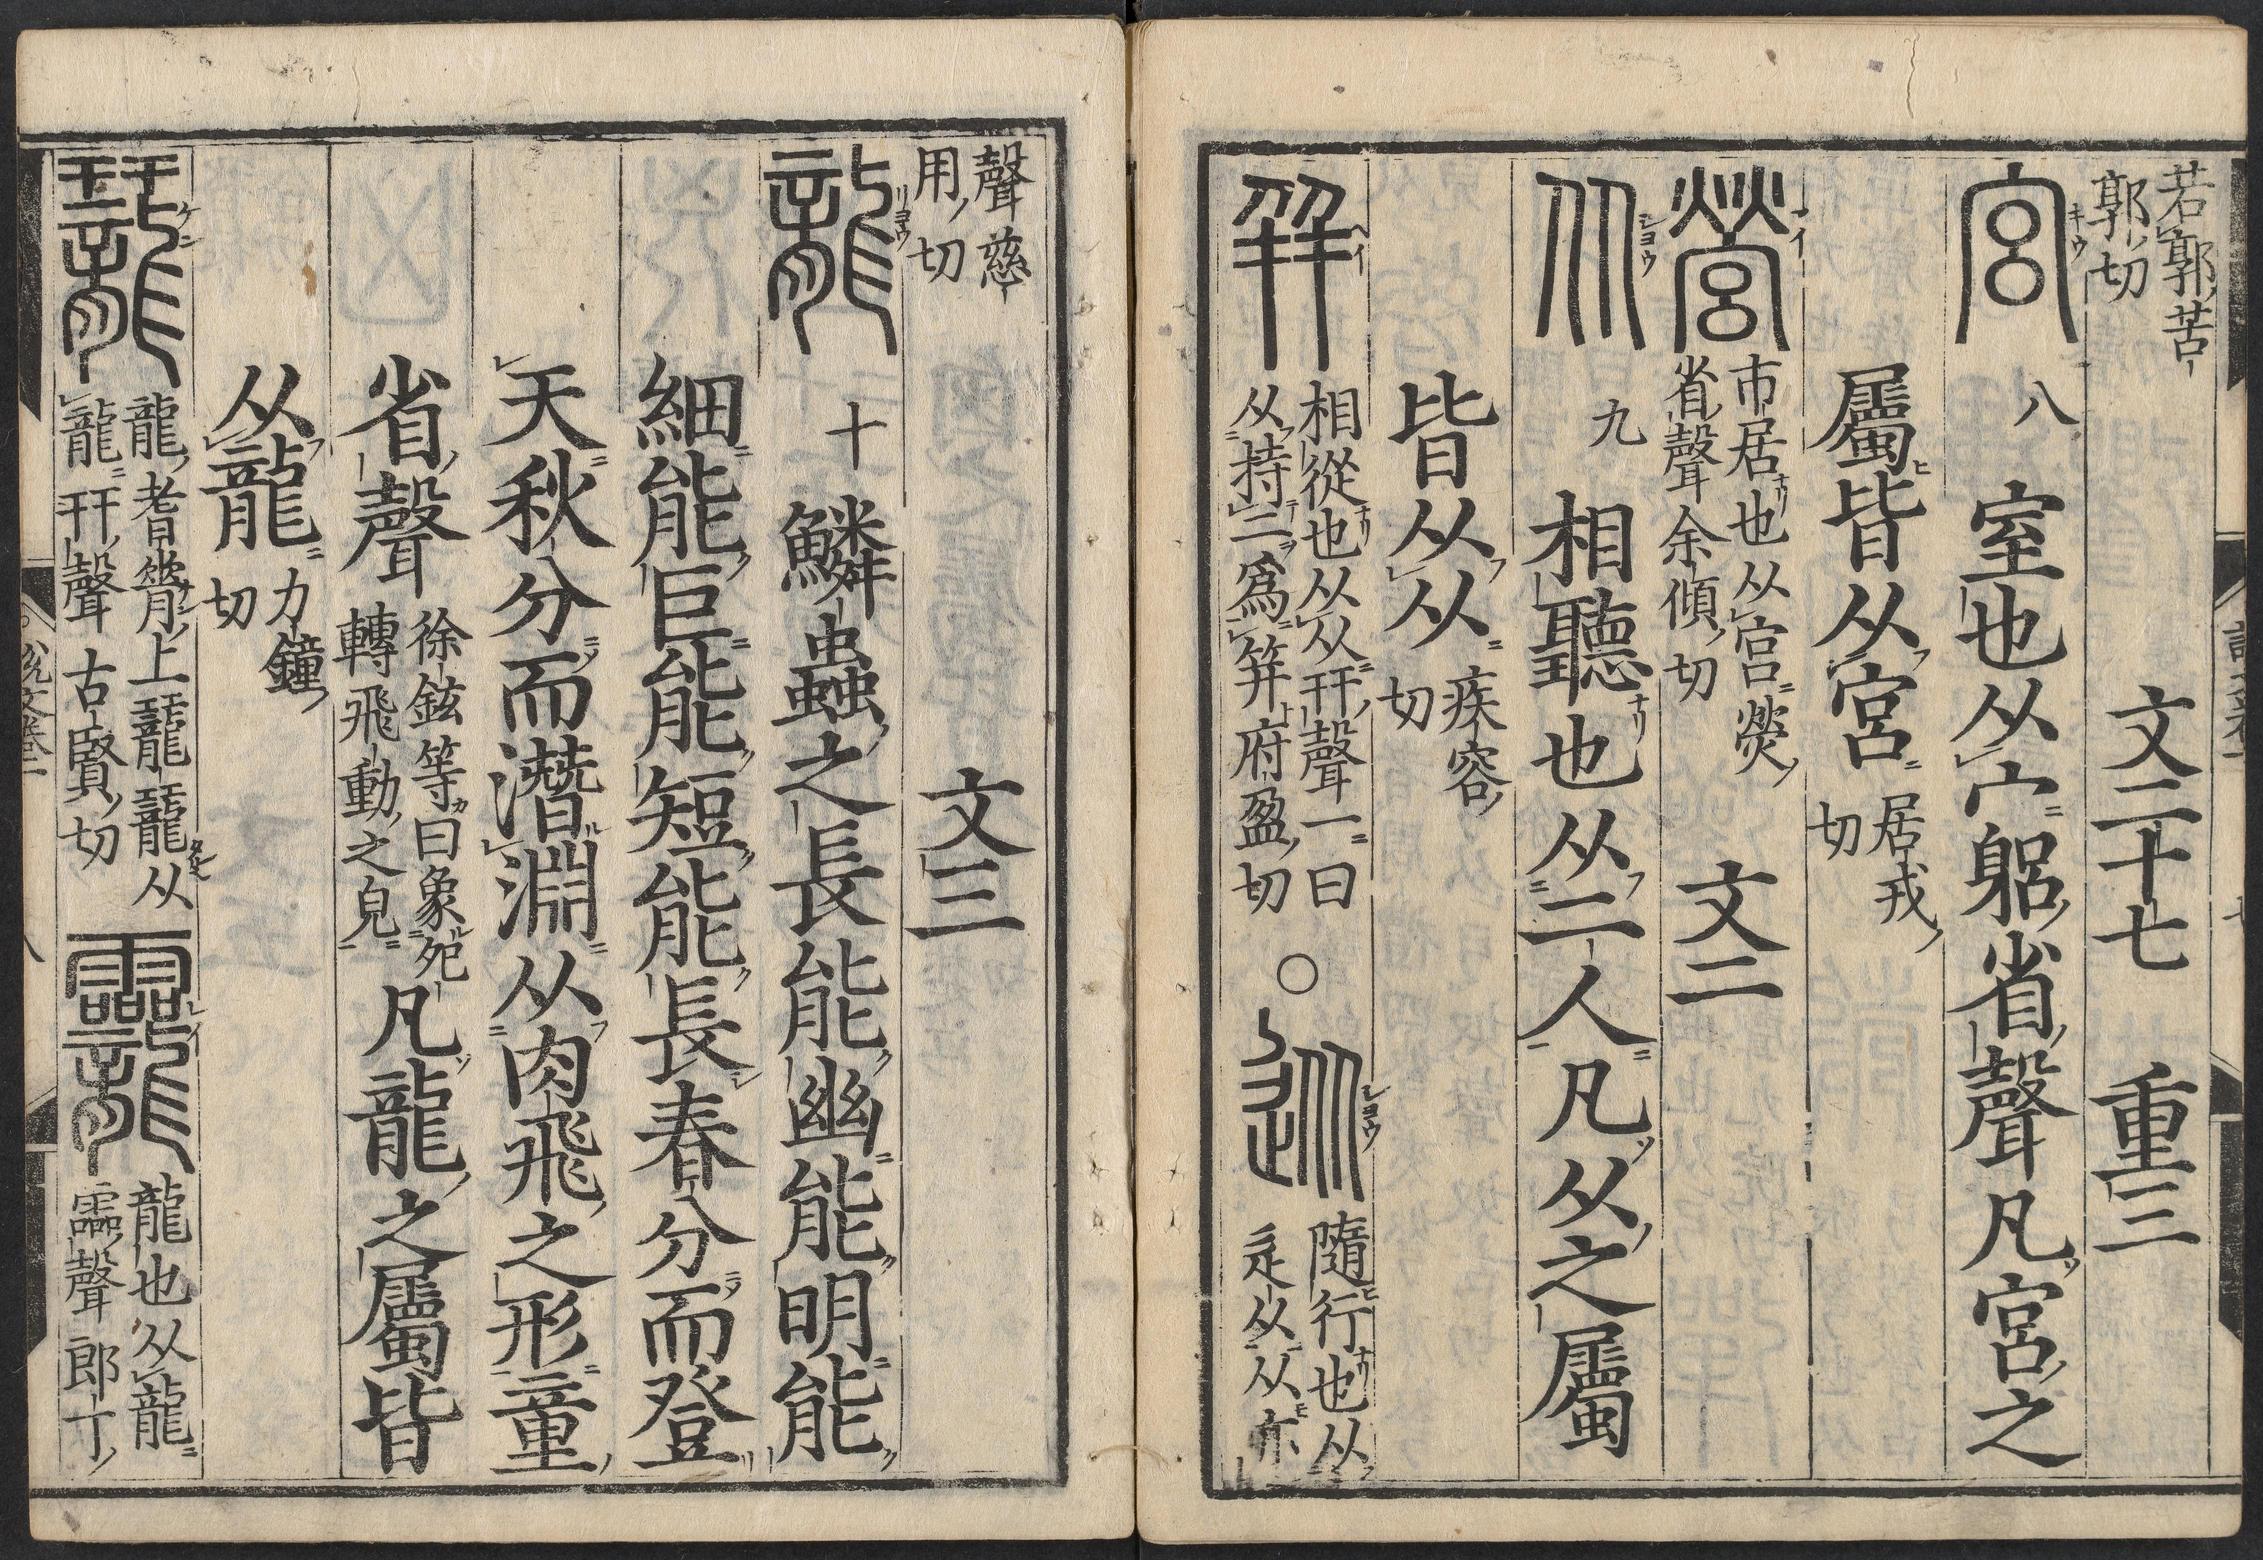 若郭苦
郭切
文二十七 重三
宮 八 室也从宀躳省聲凡宮之
屬皆从宮 居戎
切
營 市居也从宮熒
省聲余傾切
文二
从 九 相聽也从二人凡从之屬
皆从从 疾容
切
幷 相從也从从幵聲一曰
从持二爲幷府盈切
○
從 隨行也从
辵从从亦
聲慈
用切
文三
龍 十 鱗蟲之長能幽能明能
細能巨能短能長春分而登
天秋分而潛淵从肉飛之形童
省聲 徐鉉等曰象夗
轉飛動之皃
凡龍之屬皆
从龍 力鐘
切
龍耆脊上龖龖从
龍幵聲 古賢切
龗 龍也从龍
霝聲 郎丁